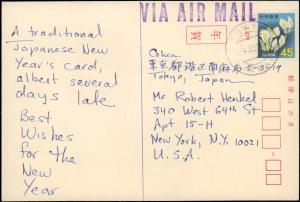 VIA AIR MAIL
年賀
日本郵便
45
A traditional
Japanese New
Year's card,
albert several
days late
Best
Wishes
for the
New
Year
Cohen
東京都港区南麻布5-3-19
Tokyo, Japan
Mr Robert Henkel
340 West 64th St
Apt 15-H
New York, N.Y. 10021
U.S.A.
郵便はがき